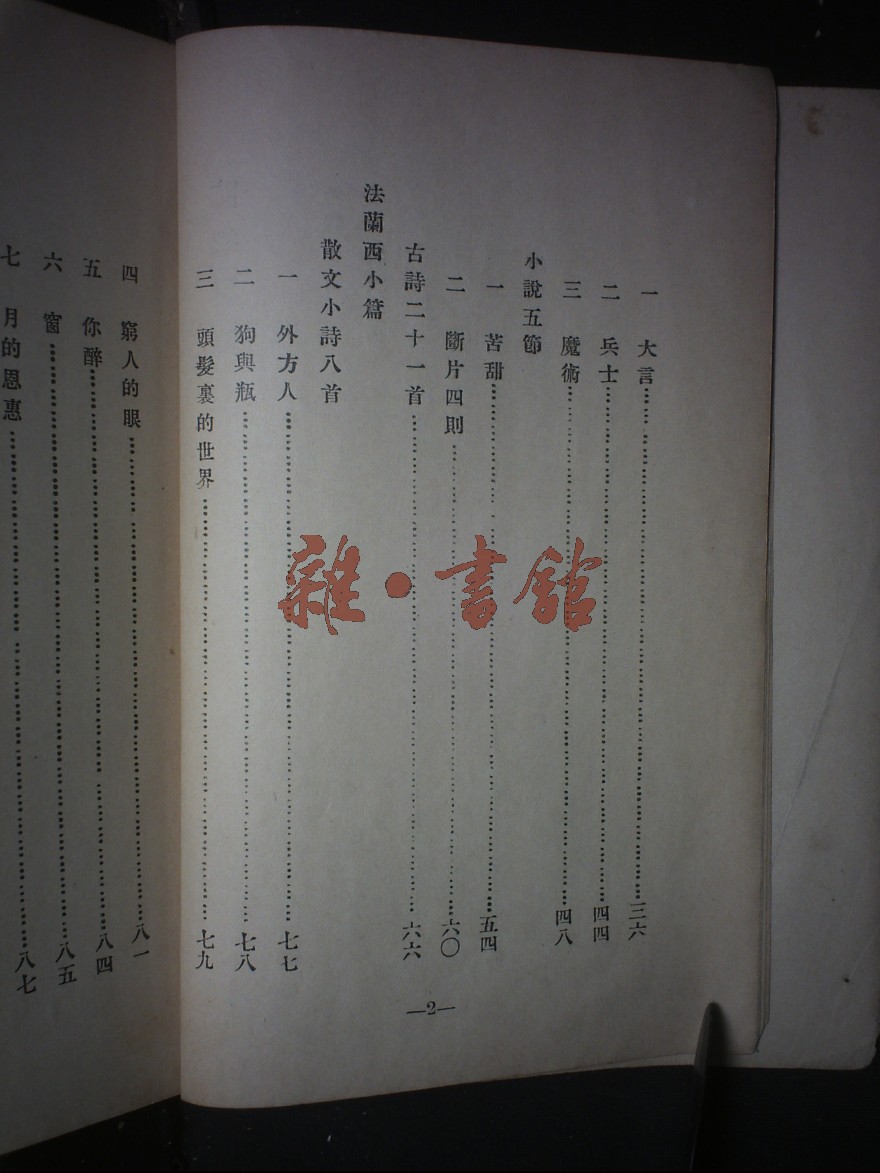 一 大言……三六
二 兵士……四四
三 魔術……四八
小說五節
一 苦甜……五四
二 斷片四則……六〇
古詩二十一首……六六
法蘭西小篇
散文小詩八首
一 外方人……七七
二 狗與瓶……七八
三 頭髮裏的世界……七九
—2—
四 窮人的眼……八一
五 你醉……八四
六 窗……八五
七 月的恩惠……八七
雜·書館